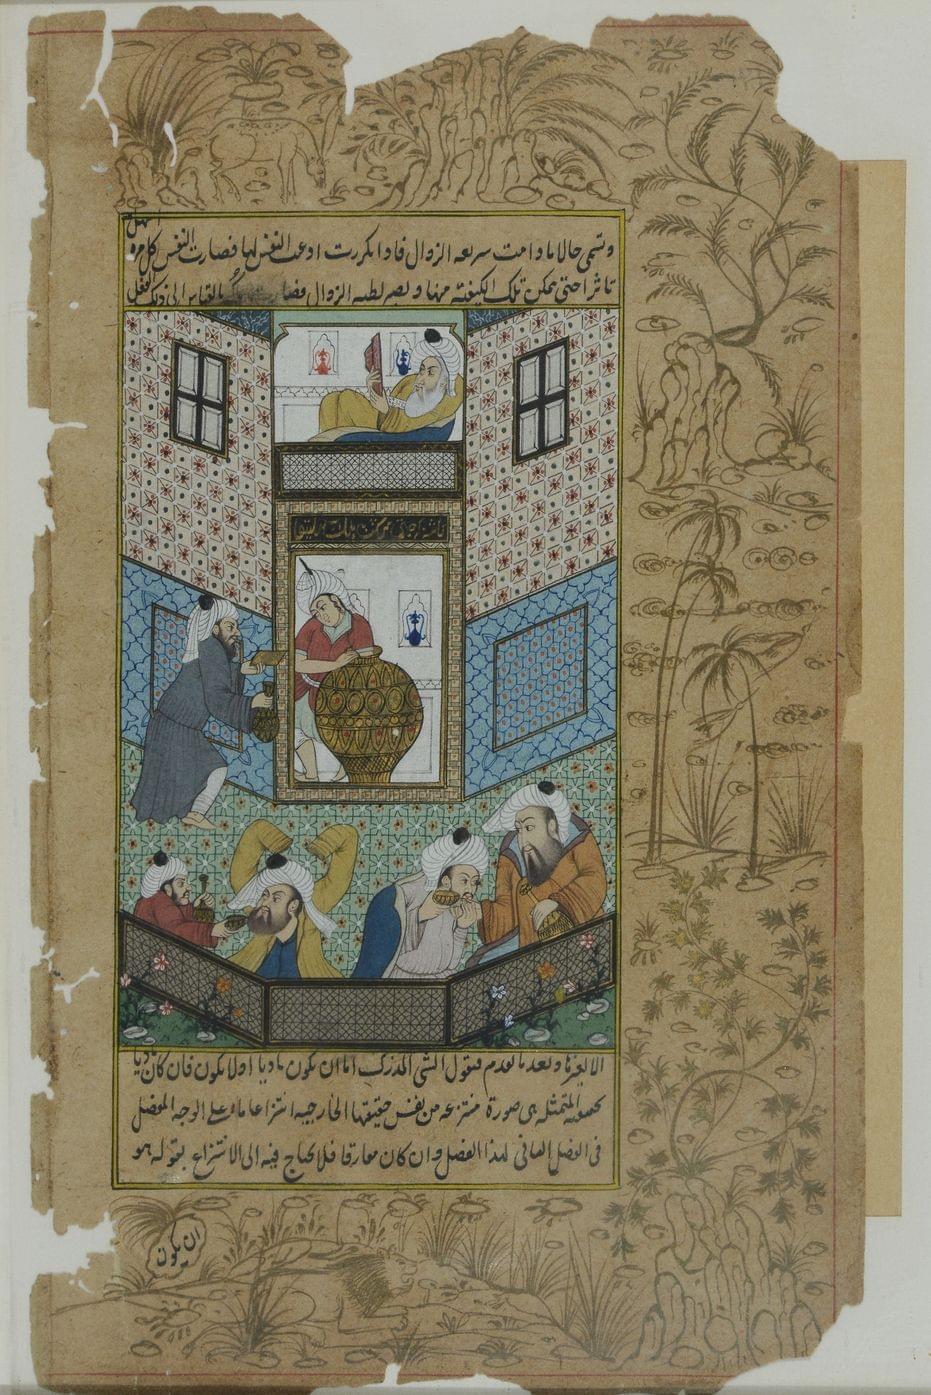 وتسمى حالا ما دامت سريعه الزوال فاذا تكررت اذعنت النفس لها فصارت النفس كل مره
تاثرا حتى تمكن تلك الكيفية منها و بطيه الزوال بالقياس الى ذلك الفعل
تاثرا حتى تمكن تلك
الا لغيرها وبعد ما تقدم فنقول الشى المدرك اما ان يكون ماديا او لا يكون فان كان ماديا
المتمثله هى صورة منتزعه من نفس حقيقتها الخارجيه انتزاعا ما على الوجه المفصل
فى الفصل لهذا الفصل وان كان مفارقا فلا يحتاج فيه الى الانتزاع بقوله هو
ان يكون